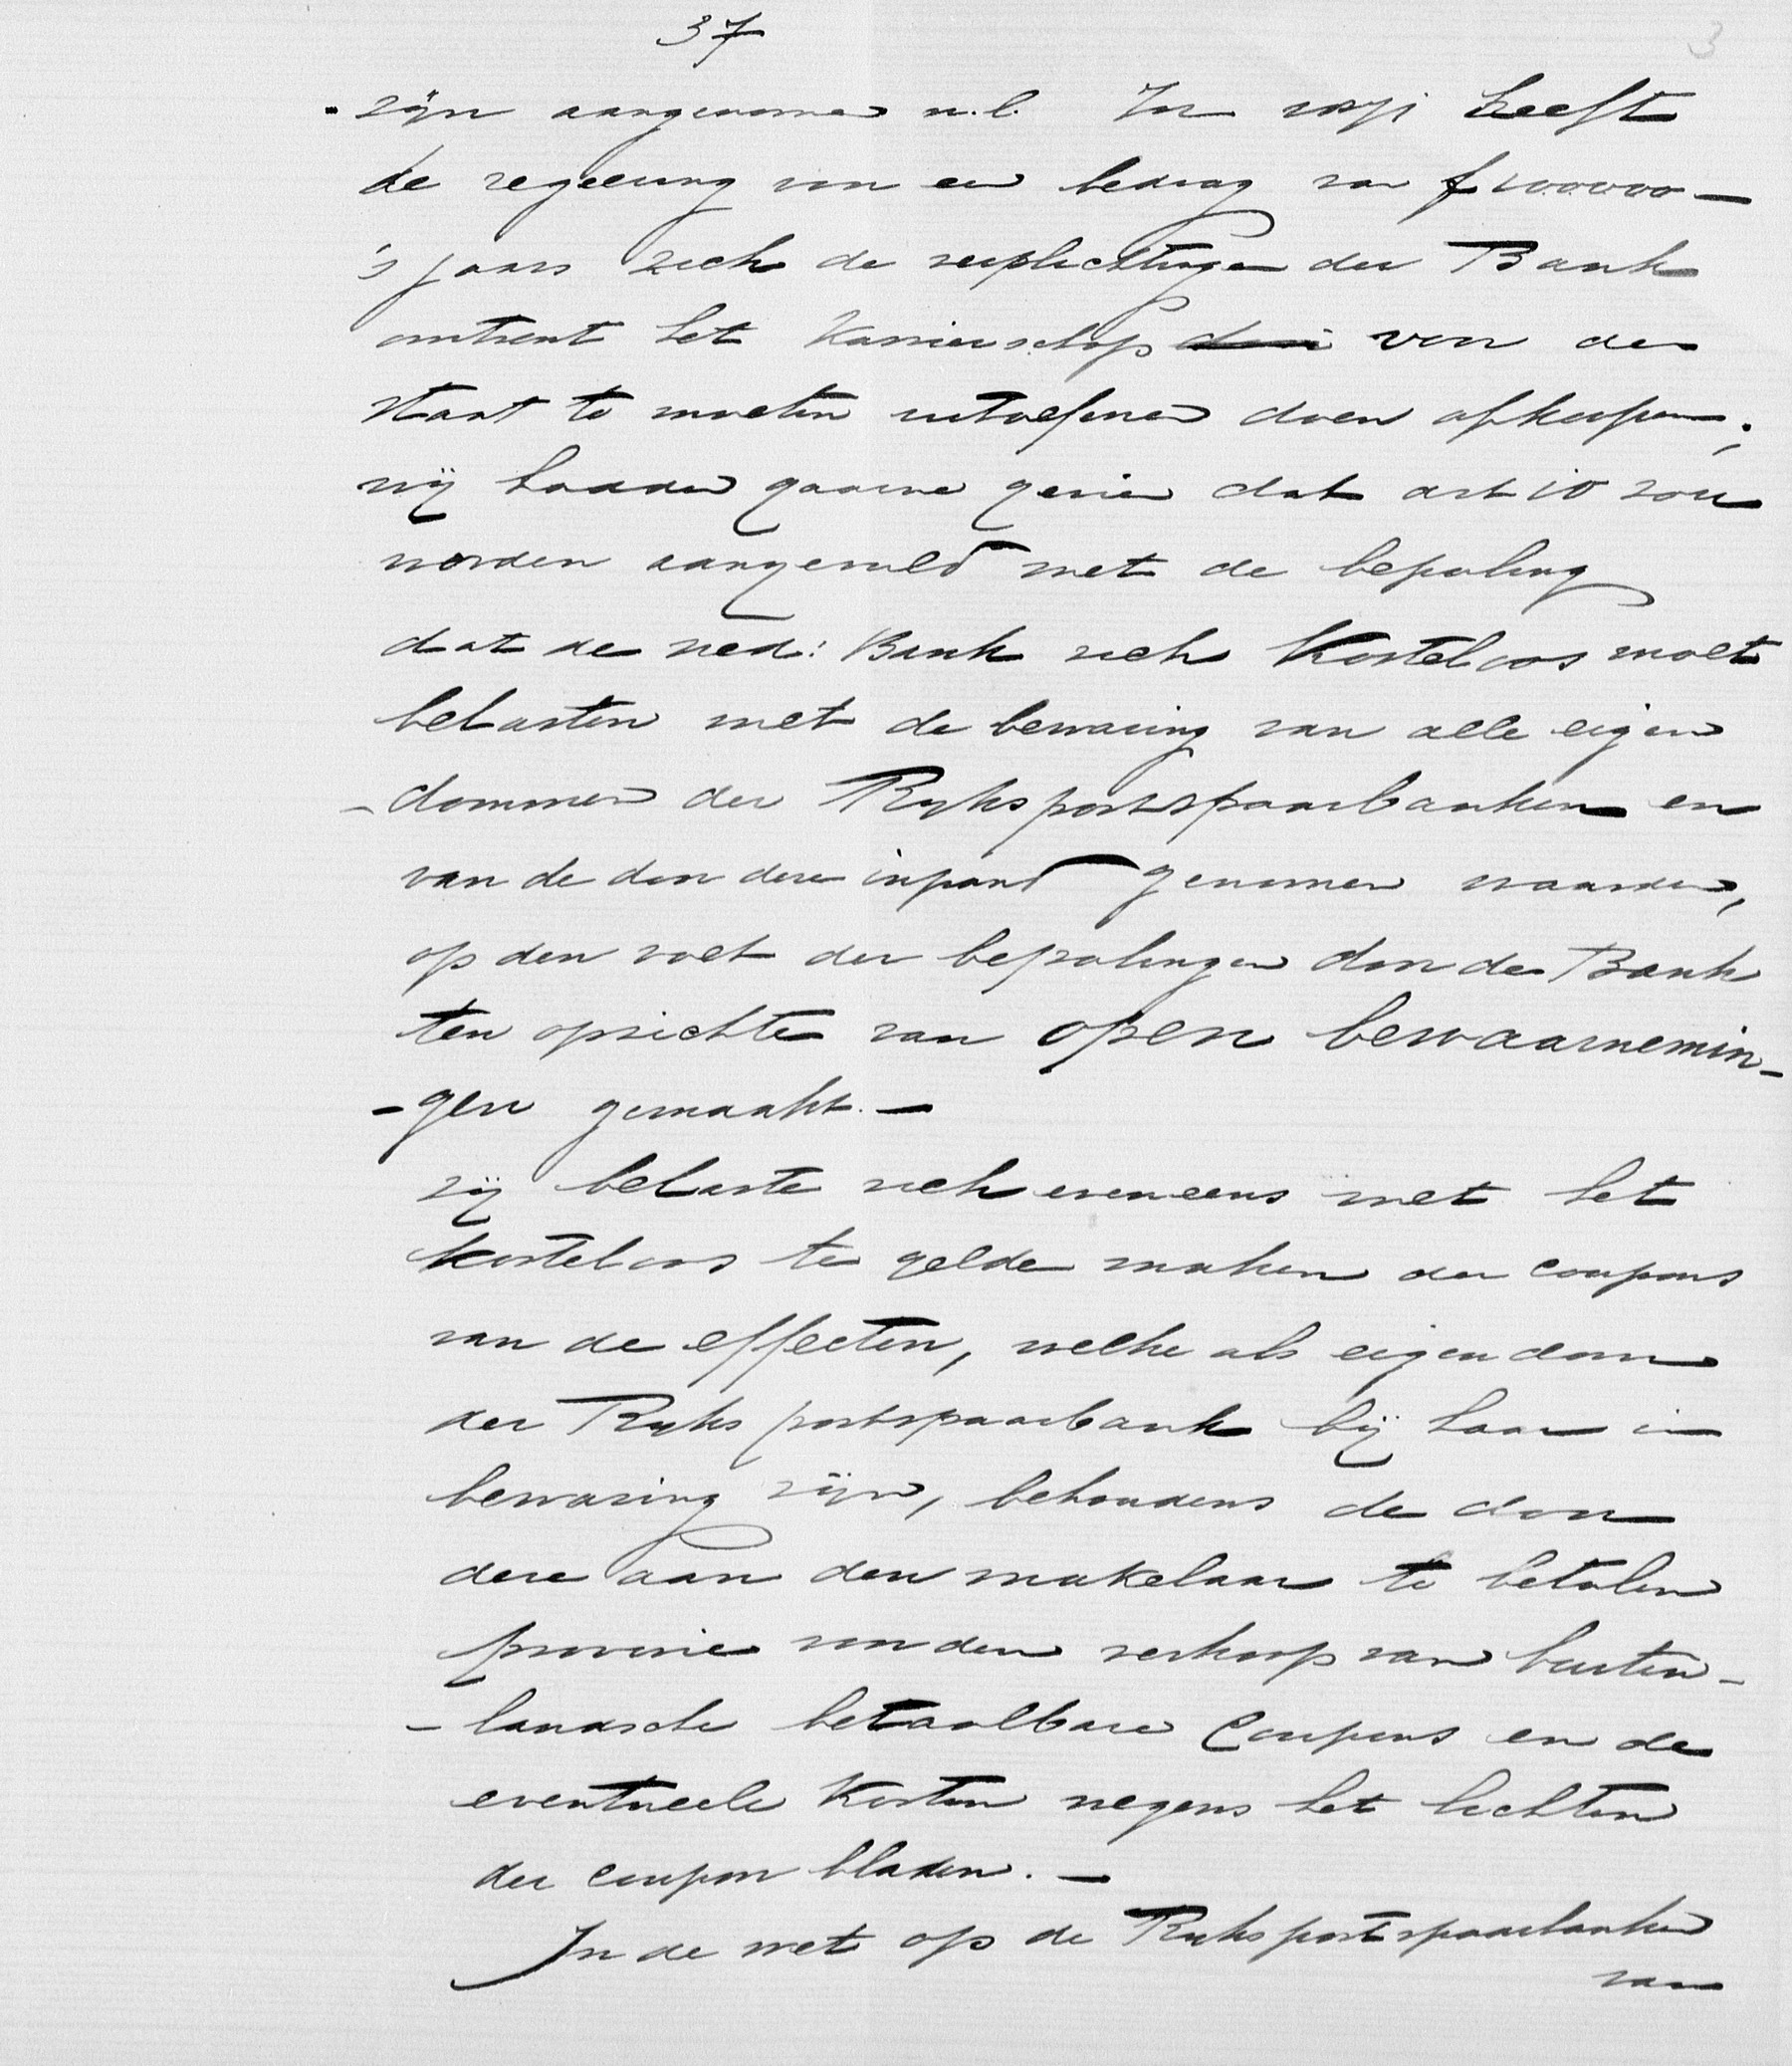 37
3
zijn aangenomen n.l. heeft
de regeering voor een bedrag van f 100000 —
's jaars zich de verplichtingen der Bank
omtrent het Kassierschap van den
staat te moeten uitoefenen doen afkoopen;
wij hadden gaarne gezien dat art 10 zou
worden aangevuld met de bepaling
dat de Ned: Bank zich Kosteloos moet
belasten met de bewaring van alle eigen
-dommen der Rijkspostspaarbanken en
van de door deze inpand genomen waarden,
op den voet der bepalingen door de Bank
ten opzichte van open bewaarnemin-
-gen gemaakt. —
zij belaste zich eveneens met het
kosteloos te gelde maken der coupons
van de effecten, welke als eigendom
der Rijks postspaarbank bij haar in
bewaring zijn, behoudens de door
deze aan den makelaar te betalen
provisie voor den verkoop van buiten-
-landsche betaalbare Coupons en de
eventueele Kosten wegens het lichten
der coupon bladen. —
In de wet op de Rijkspostspaarbanken
van